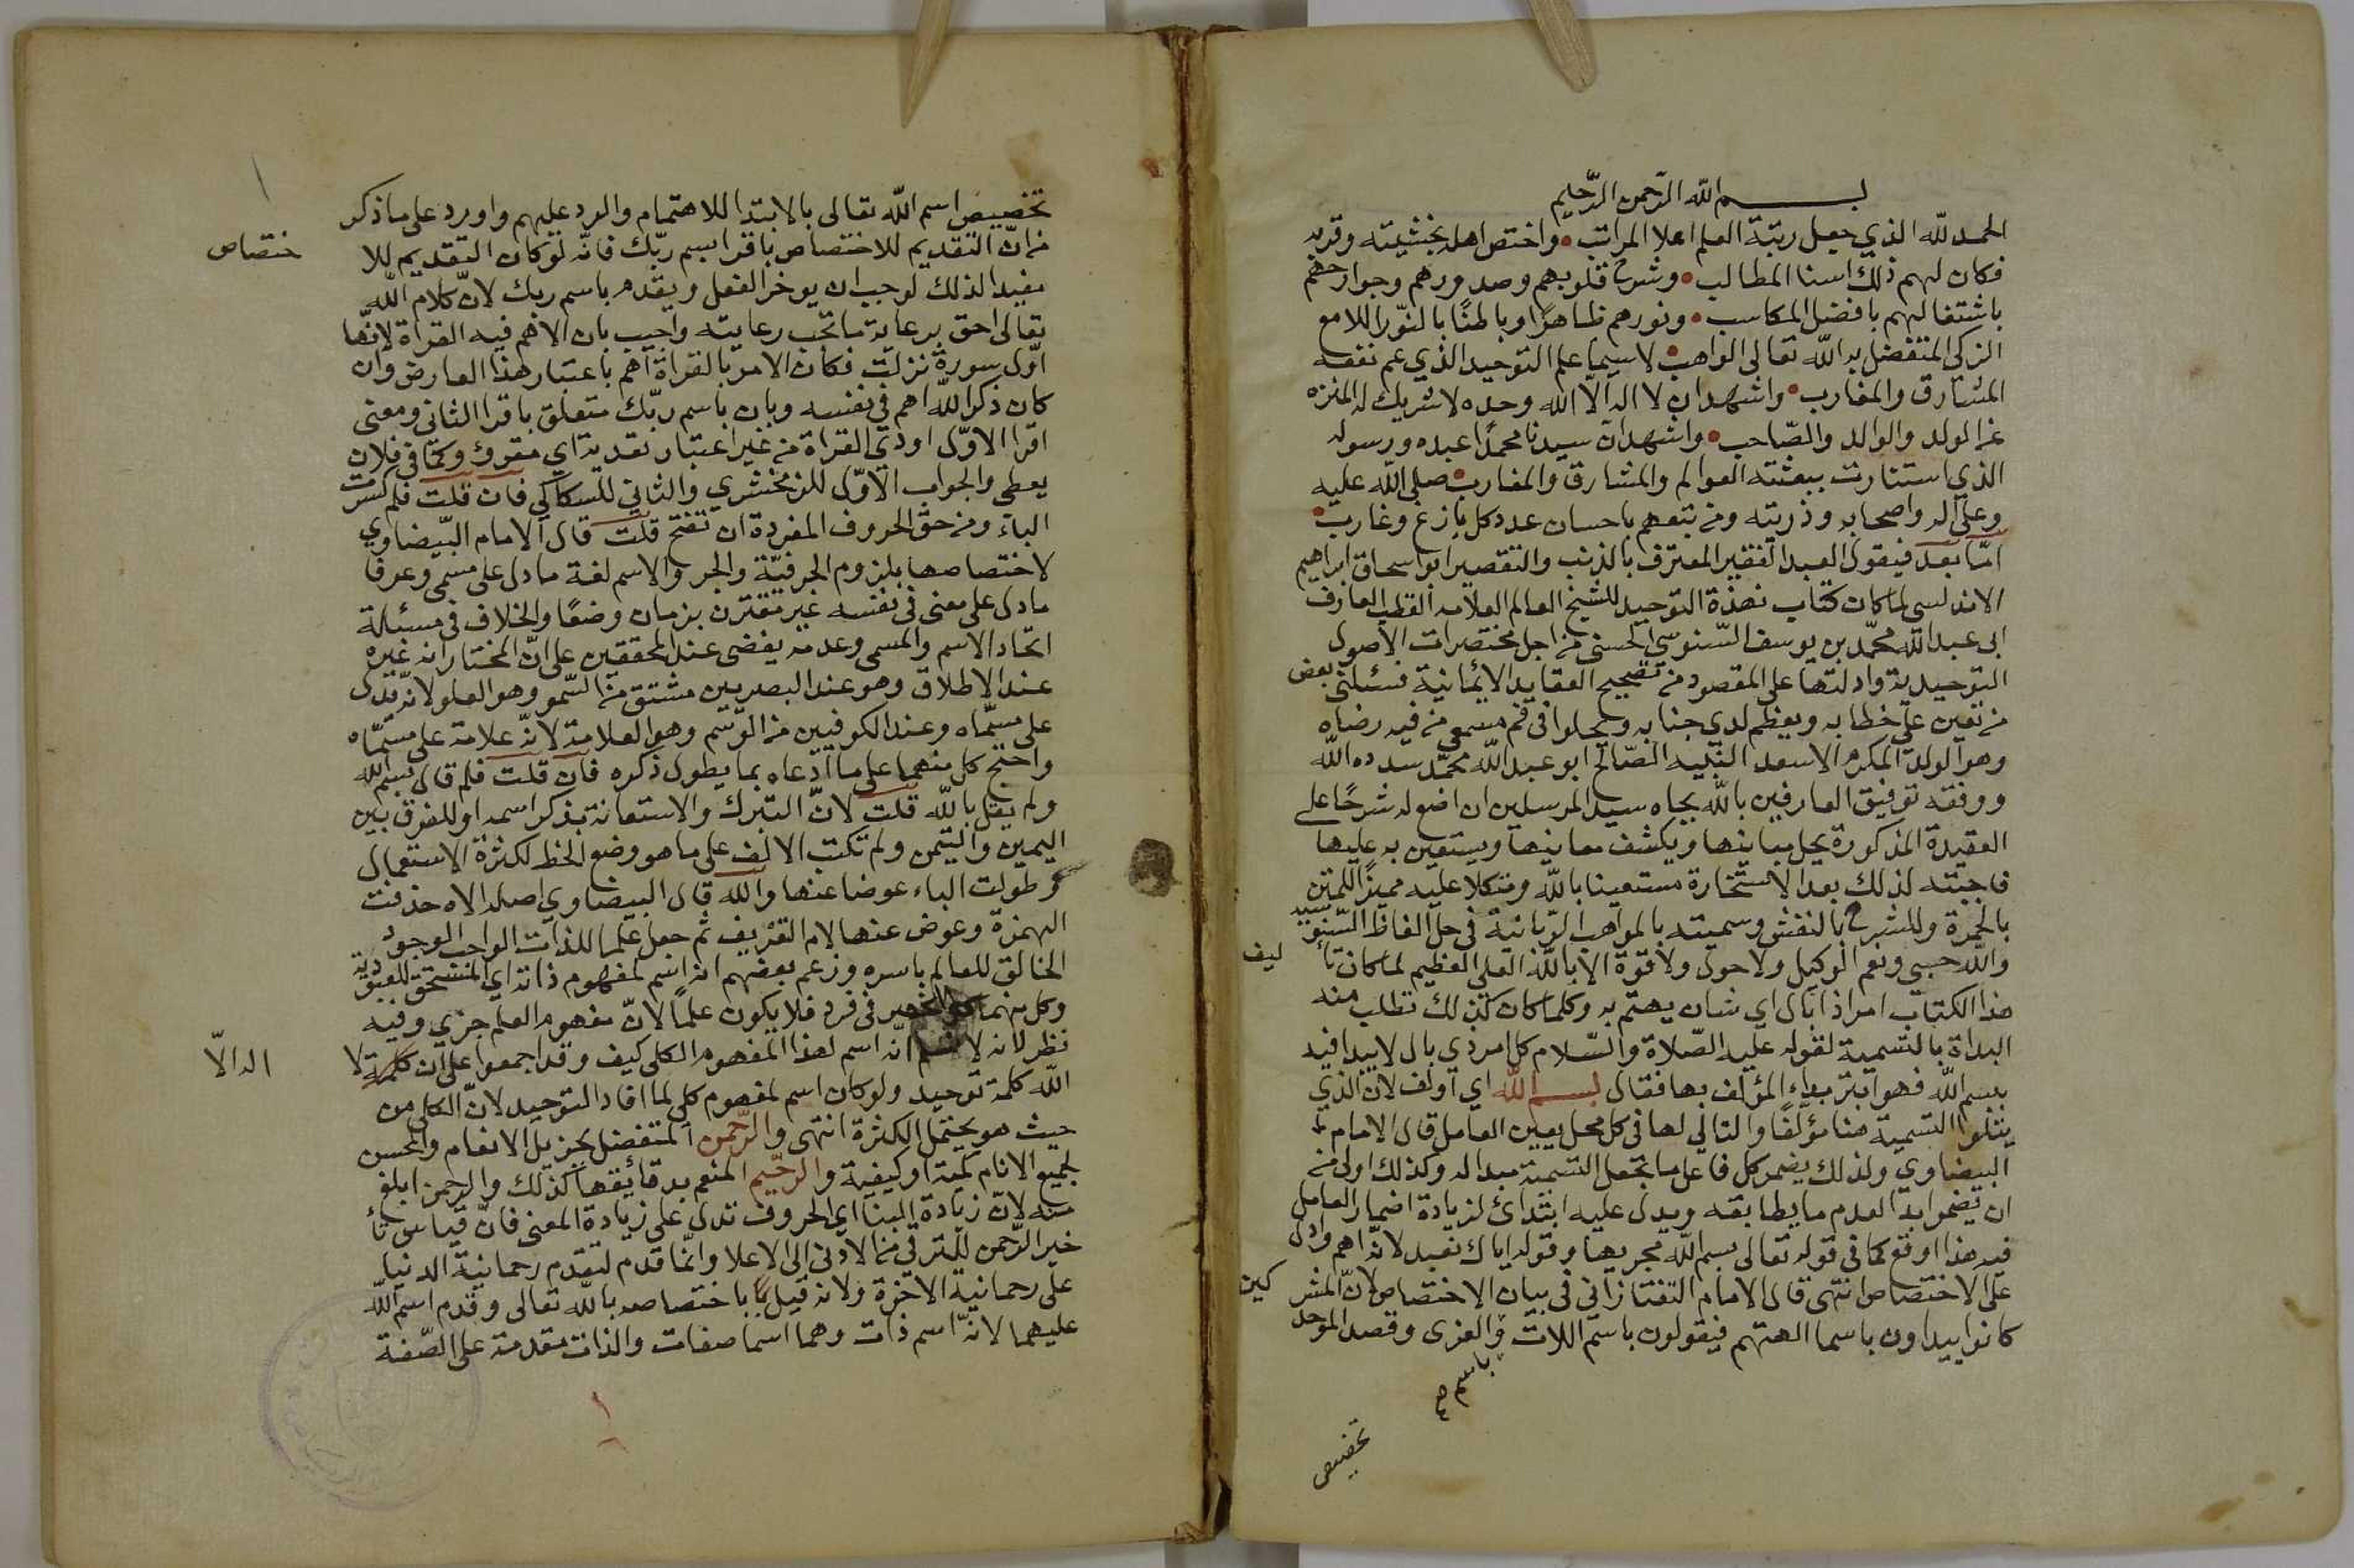 بسم الله الرحمن الرحيم
الحمد لله الذي جعل رتبة العلم اعلا المراتب • واختص اهله بخشيته وقربه
فكان لهم ذلك اسنا المطالب • وشرح قلوبهم وصدورهم وجوارحهم
باشتغالهم بافضل المكاسب • ونورهم ظاهرًا وباطنًا بالنّور اللامع
الزكي المتفضل به الله تعالى الواهب • لاسيما علم التوحيد الذي عم نفعه
المشارق والمغارب • واشهد ان لا اله الّا الله وحده لا شريك له المنزه
عن الولد والوالد والصّاحب • واشهد ان سيدنا محمدًا عبده ورسوله
الذي استنارت ببعثته العوالم والمشارق والمغارب • صلى الله عليه
وعلى اله واصحابه وذريته ومن تبعهم باحسان عدد كل بازغ وغارب •
امّا بعد فيقول العبد الفقير المعترف بالذنب والتقصير ابو اسحاق ابراهيم
الاندلسي لما كان كتاب نبذة التوحيد للشيخ العالم العلامه القطب العارف
ابى عبد الله محمّد بن يوسف السّنوسي الحسنى من اجل مختصرات الاصول
التوحيدية وادلتها على المقصود من تصحيح العقايد الايمانية فسئلنى بعض
من تعين علي خطابه ويعظم لدي جنابه ويحلوا فى فم مسمعي من فيه رضاه
وهو الولد المكرم الاسعد النّبيه الصّالح ابو عبد الله محمّد سدده الله
ووفقه توفيق العارفين بالله بجاه سيد المرسلين ان اضع له شرحًا على
العقيدة المذكورة يحل مبانيها ويكشف معانيها ويستعين به عليها
فاجبته لذلك بعد الاستخارة مستعينا بالله ومتكلا عليه مميزًا للمتن
بالحمرة وللشرح بالنقش وسميته بالمواهب الرّبانية فى حل الفاظ السّنوسيه
والله حسبى ونعم الوكيل ولا حول ولا قوة الا بالله العلي العظيم لما كان تأ ليف
هذا الكتاب امرا ذا بال اي شان يهتم به وكلما كان كذلك تطلب منه
البداة بالتسمية لقوله عليه الصّلاة والسّلام كل امر ذي بال لا يبدا فيه
بسم الله فهو ابتر بداء المؤلف بها فقال بسم الله اي اولف لان الذي
يتلوا التسمية هنا مؤلّفًا والتالي لها فى كل محل يعين العامل قال الامام
البيضاوي ولذلك يضمر كل فاعل ما تجعل التسمية مبدا له وكذلك اولى من
ان يضمر ابدا لعدم ما يطابقه ويدل عليه ابتدائ لزيادة اضمار العامل
فيه هذا اوقع كما فى قوله تعالى بسم الله مجريها وقوله اياك نعبد لانه اهم وادل
على الاختصاص انتهى قال الامام التفتازاني فى بيان الاختصاص لانّ المشر كين
كانوا يبداون باسما الهتهم فيقولون باسم اللات والعزى وقصد الموحد
باسم صح
تخصيص
تخصيص اسم الله تعالى بالابتدا للاهتمام والرد عليهم واورد على ما ذكر
من انّ التقديم للاختصاص باقرا باسم ربّك فانّه لوكان التقديم للا ختصاص
مفيدا لذلك لوجب ان يوخر الفعل ويقدم باسم ربك لانّ كلام الله
تعالى احق برعاية ما تجب رعايته واجيب بان الاهم فيه القراة لانها
اوّل سورة نزلت فكان الامر بالقراة اهم باعتبار هذا العارض وان
كان ذكر الله اهم فى نفسه وبان باسم ربّك متعلق باقرا الثانى ومعنى
اقرا الاوّل اوجد القراة من غير اعتبار تعدية اي مقروء وكما فى فلان
يعطي والجواب الاوّل للزمخشري والثاني للسكاكي فان قلت فلم كسرت
الباء ومن حق الحروف المفردة ان تفتح قلت قال الامام البيّضاوي
لاختصاصها بلزوم الحرفيّة والجر والاسم لغة ما دل على مسمى وعرفا
ما دل على معنى فى نفسه غير مقترن بزمان وضعًا والخلاف فى مسئلة
اتحاد الاسم والمسمى وعدمه يفضى عند المحققين على انّ المختار انه غيره
عند الاطلاق وهو عند البصريين مشتق من السّمو وهو العلو لانه يدل
على مسمّاه وعند الكوفيين من الوسم وهو العلامة لانّه علامة على مسمّاه
واحتج كل منهما على ما ادعاه بما يطول ذكره فان قلت فلم قال بسم الله
ولم يقل بالله قلت لانّ التبرك والاستعانة بذكر اسمه او للفرق بين
اليمين والتيمن ولم تكتب الالف على ما هو وضع الخط لكثرة الاستعمال
وطولت الباء عوضا عنها والله قال البيضاوي اصله الاه حذفت
الهمزة وعوض عنها لام التعريف ثم جعل علما للذات الواجب الوجود
الخالق للعالم باسره وزعم بعضهم انه اسم لمفهوم ذاته اي المستحق للعبودية
وكل منهما فى فرد فلا يكون علمًا لانّ مفهوم العلم جزي وفيه
نظر لانه لا نسلم انّه اسم لهذا المفهوم الكلى كيف وقد اجمعوا على ان كلمة لا اله الّا
الله كلمة توحيد ولوكان اسم لمفهوم كلي لما افاد التوحيد لانّ الكلى من
حيث هو يحتمل الكثرة انتهى والرّحمن المتفضل بجزيل الانعام والمحسن
لجميع الانام كمية وكيفية والرحيم المنعم بدقائقها كذلك والرحمن ابلغ
منه لانّ زيادة البنا اي الحروف تدل على زيادة المعنى فانّ قياس تأ
خير الرّحمن للترقي من الادنى الى الاعلا وانّما قدم لتقدم رحمانية الدنيا
على رحمانية الاخرة ولانه قيل باختصاصه بالله تعالى وقدم اسم الله
عليهما لانّه اسم ذات وهما اسما صفات والذات مقدمة على الصّفة